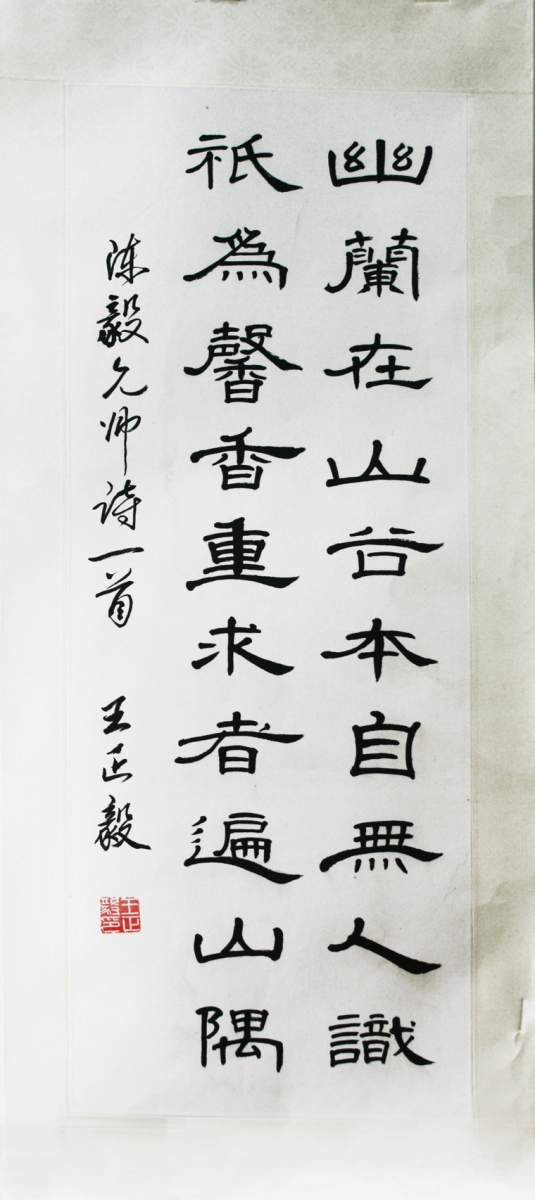 幽蘭在山谷本自無人識
祇為馨香重求者遍山隅
陈毅元帅诗一首 王正毅
王正毅印